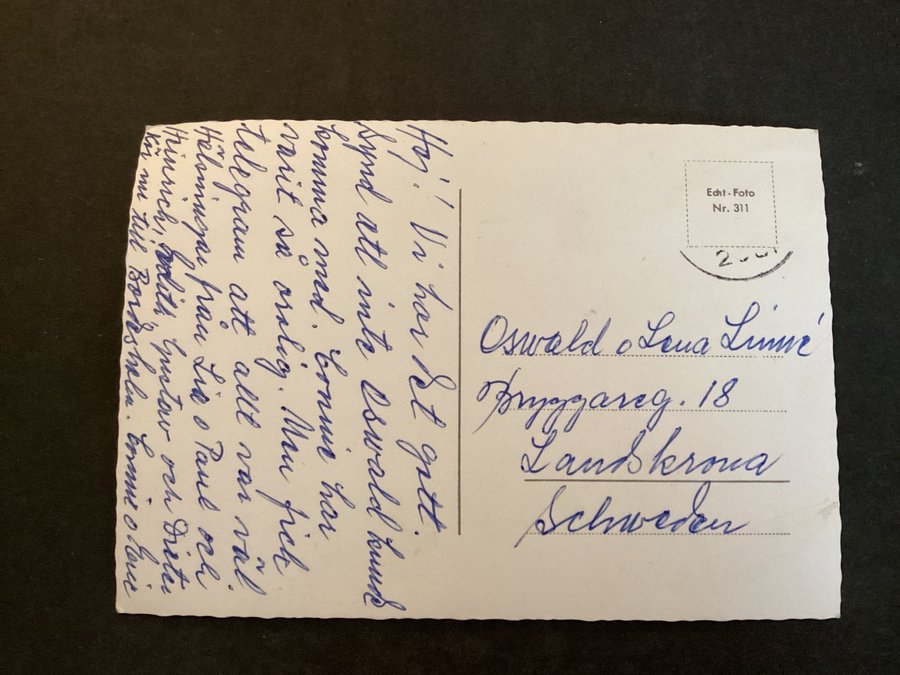 Hej! Vi har det gott.
Synd att inte Oswald kunde
komma med. Connie har
varit så orolig. Men fick
telegram att allt var väl.
Hälsningar från Lis o Paul och
Heinrich, Edith, Gustav och Dieter
Kör nu till Bordesholm. Connie o
Echt-Foto
Nr. 311
Oswald o Lena Linné
Bryggareg. 18
Landskrona
Schweden